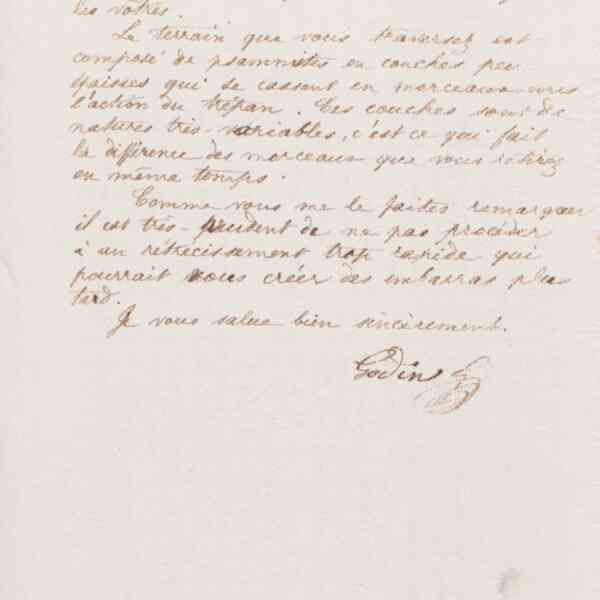 les vôtres.
Le terrain que vous traversez est
composé de psammites en couches peu
épaisses qui se cassent en morceaux sous
l'action du trépan. Ces couches sont de
natures très-variables, c'est ce qui fait
la différence des morceaux que vous retirez
en même temps.
Comme vous me le faites remarquer
il est très-prudent de ne pas procéder
à un rétrécissement trop rapide qui
pourrait vous créer des embarras plus
tard.
Je vous salue bien sincèrement.
Godin